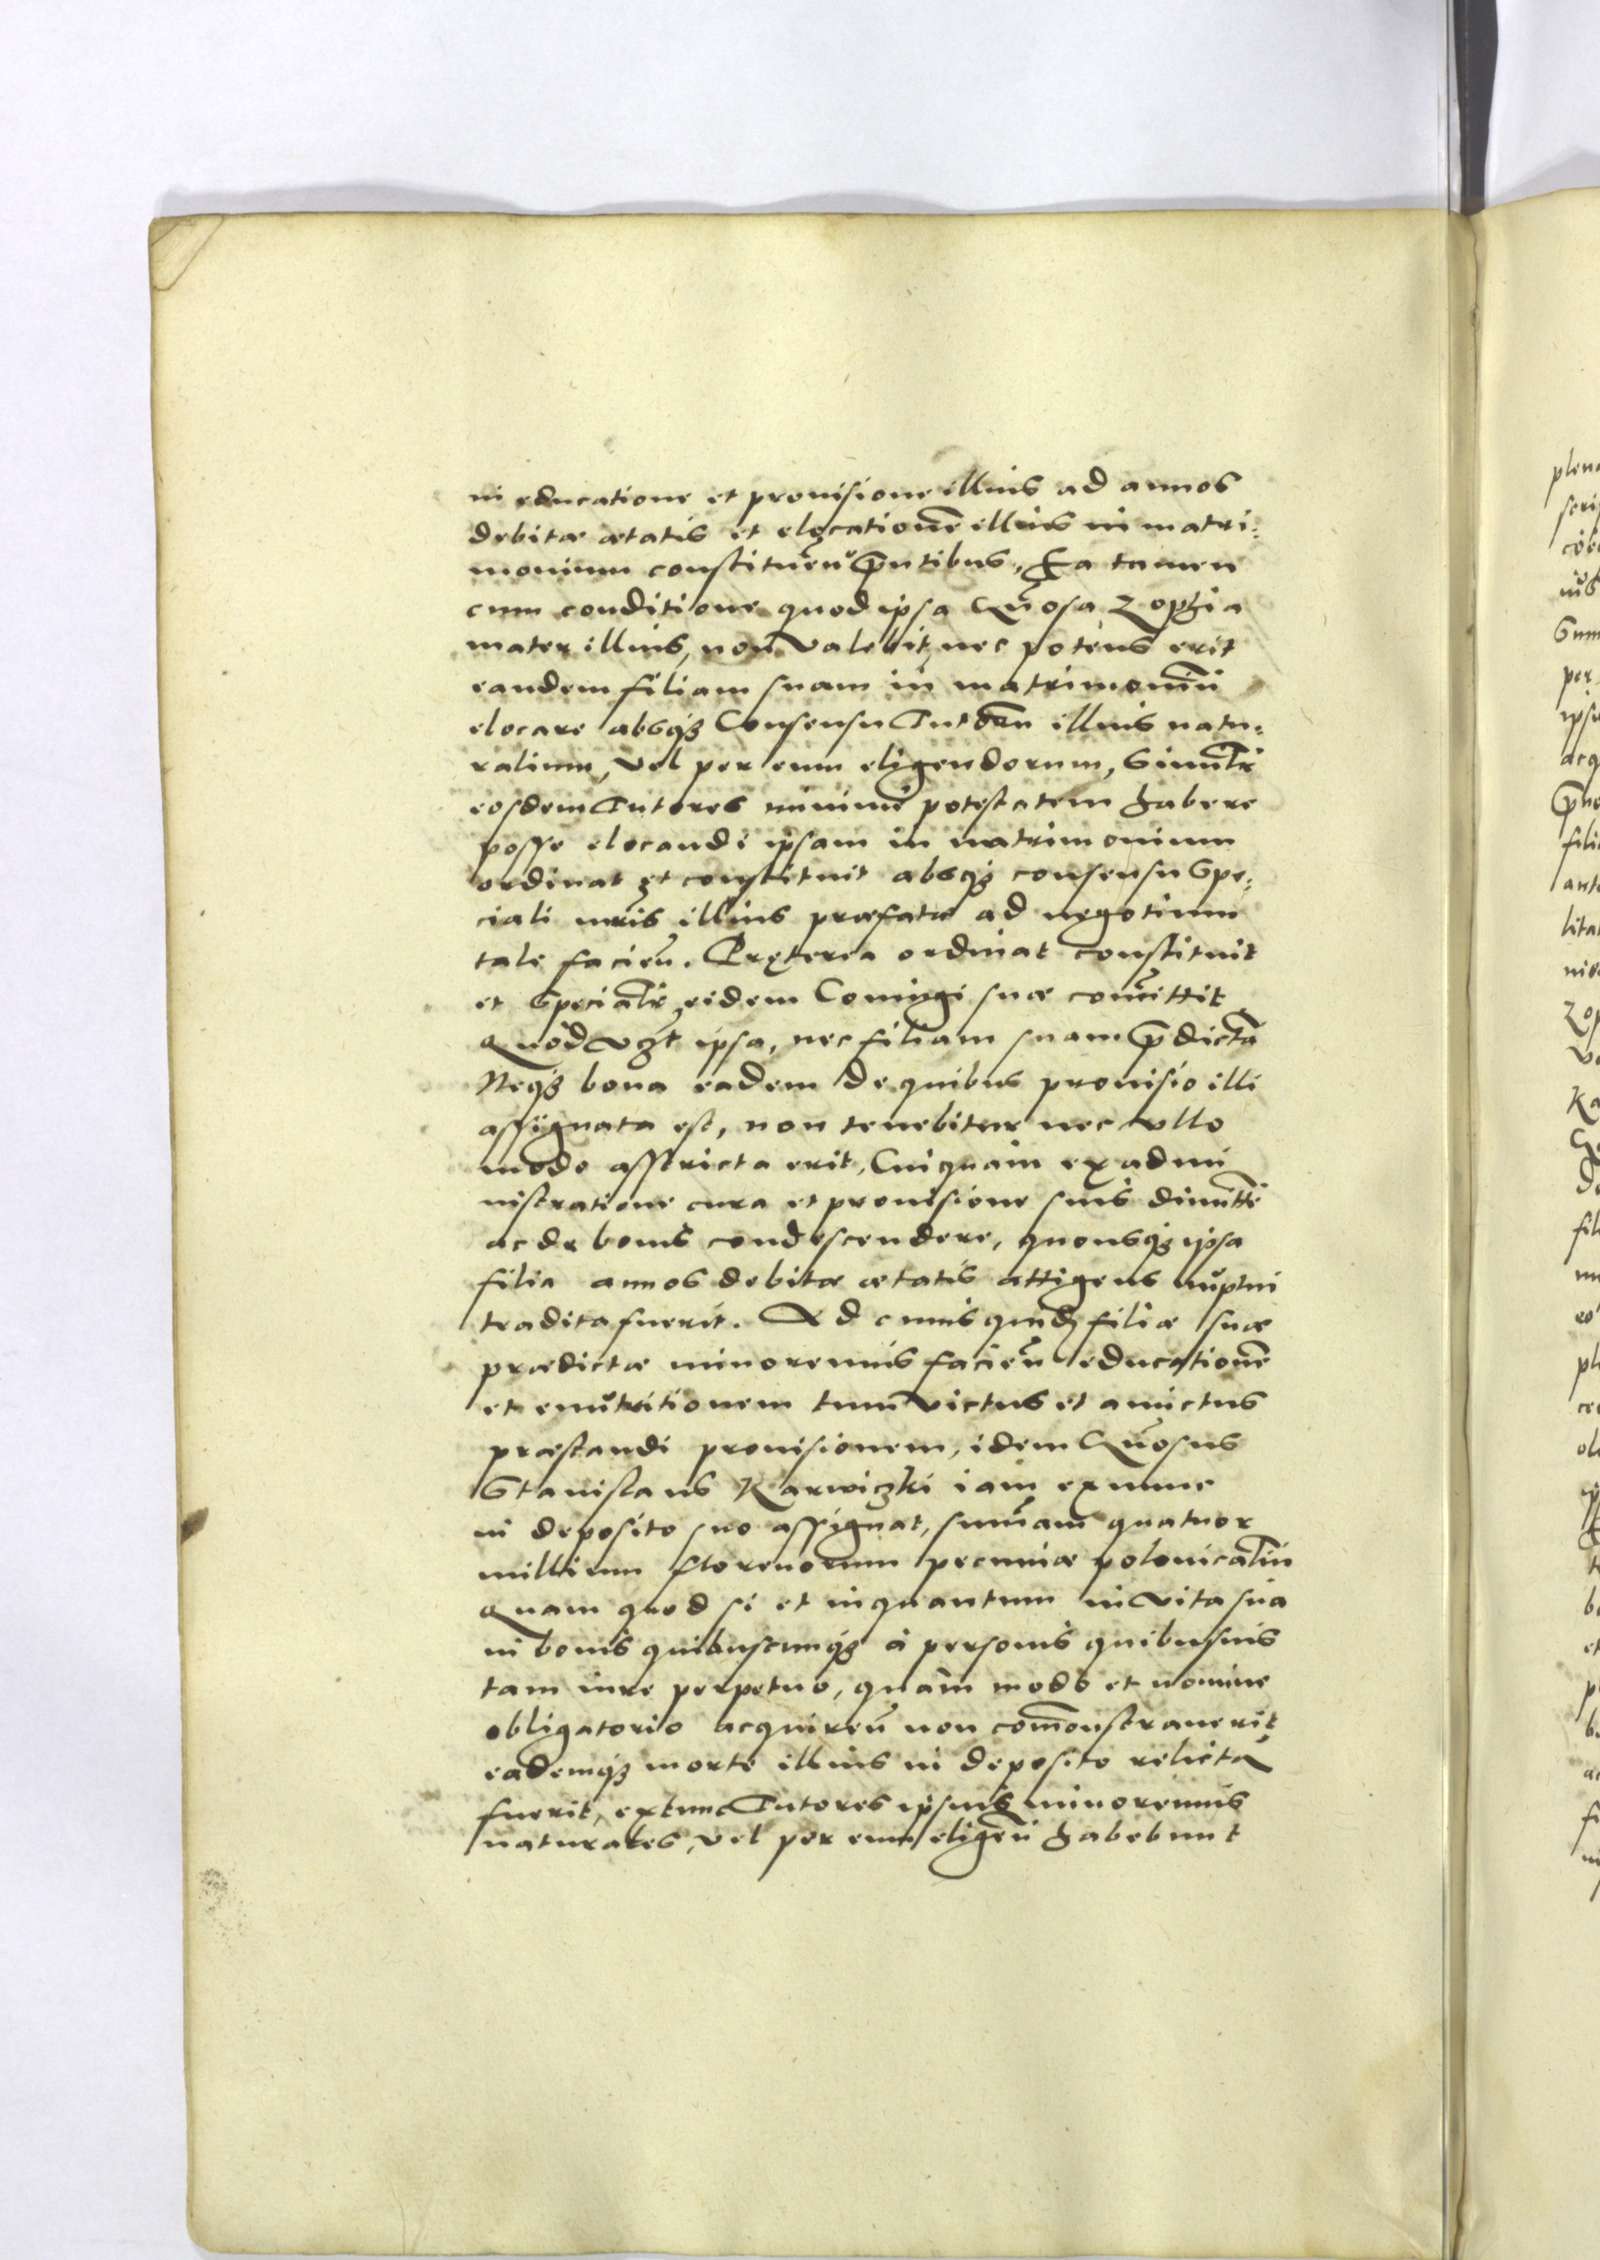 in educatione et prouisione illius ad annos
debitæ ætatis et elocationē illius in matri¬
monium constituen̄ p̄ntibus, Ea tamen
cum conditione quod ipsa Gn̄osa Zophia
mater illius, non valebit, nec potens erit
eandem filiam suam in matrimoniū
elocare absq̃ Consensu Tutorū illius natu¬
ralium, vel per eum eligendorum, Simil̄r
eosdem Tutores minimè potestatem habere
posse elocandi ipsam in matrimonium
ordinat et constituit absq̃ consensu Spe¬
ciali mr̄is illius præfatæ ad negotium
tale facien̄. Pręterea ordinat constituit
et Special̄r eidem Coniugi suæ com̄ittit
Quòd vz̄t ipsa, nec filiam suam p̄dictā
Neq̃ bona eadem de quibus prouisio illi
assignata est, non tenebitur nec vllo
modo asstricta erit, Cuiquam ex admi
nistratione cura et prouisione suis dimitte̅
ac de bonis condescendere, quousq̃ ipsa
filia annos debitæ ætatis attigens nuptui
tradita fuerit. Ad cuius quid filiæ suæ
prædictæ minorennis facien̄ educationē
et enutritionem tum victus et amictus
præstandi prouisionem, idem Gn̄osus
Stanislaus Karwiczki iam ex nunc
in deposito suo assignat, sum̄am quatuor
millium florenorum pecuniæ polonicaliū
Quam quod si et inquantum in vita sua
in bonis quibuscunq̃ à personis quibusuis
tam iure perpetuo, quàm modo et nomine
obligatorio acquiren̄ non com̄onstrauerit
eademq̃ morte illius in deposito relicta
fuerit, extunc Tutores ipsius minorennis
naturales, vel per eum eligen̄ habebunt